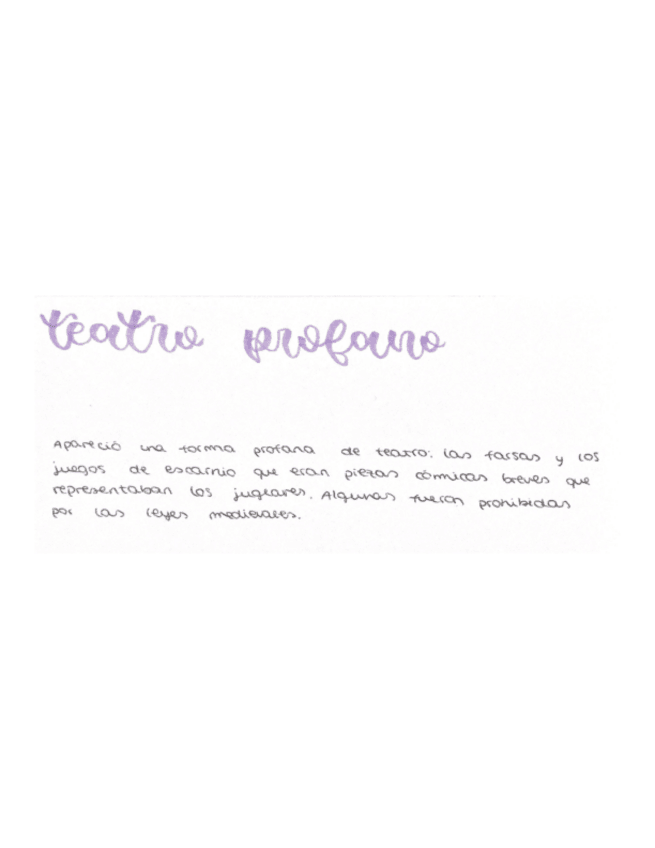 teatro profano
Apareció una forma profana de teatro: las farsas y los
juegos de escarnio que eran piezas cómicas breves que
representaban los juglares. Algunas fueron prohibidas
por las leyes medievales.